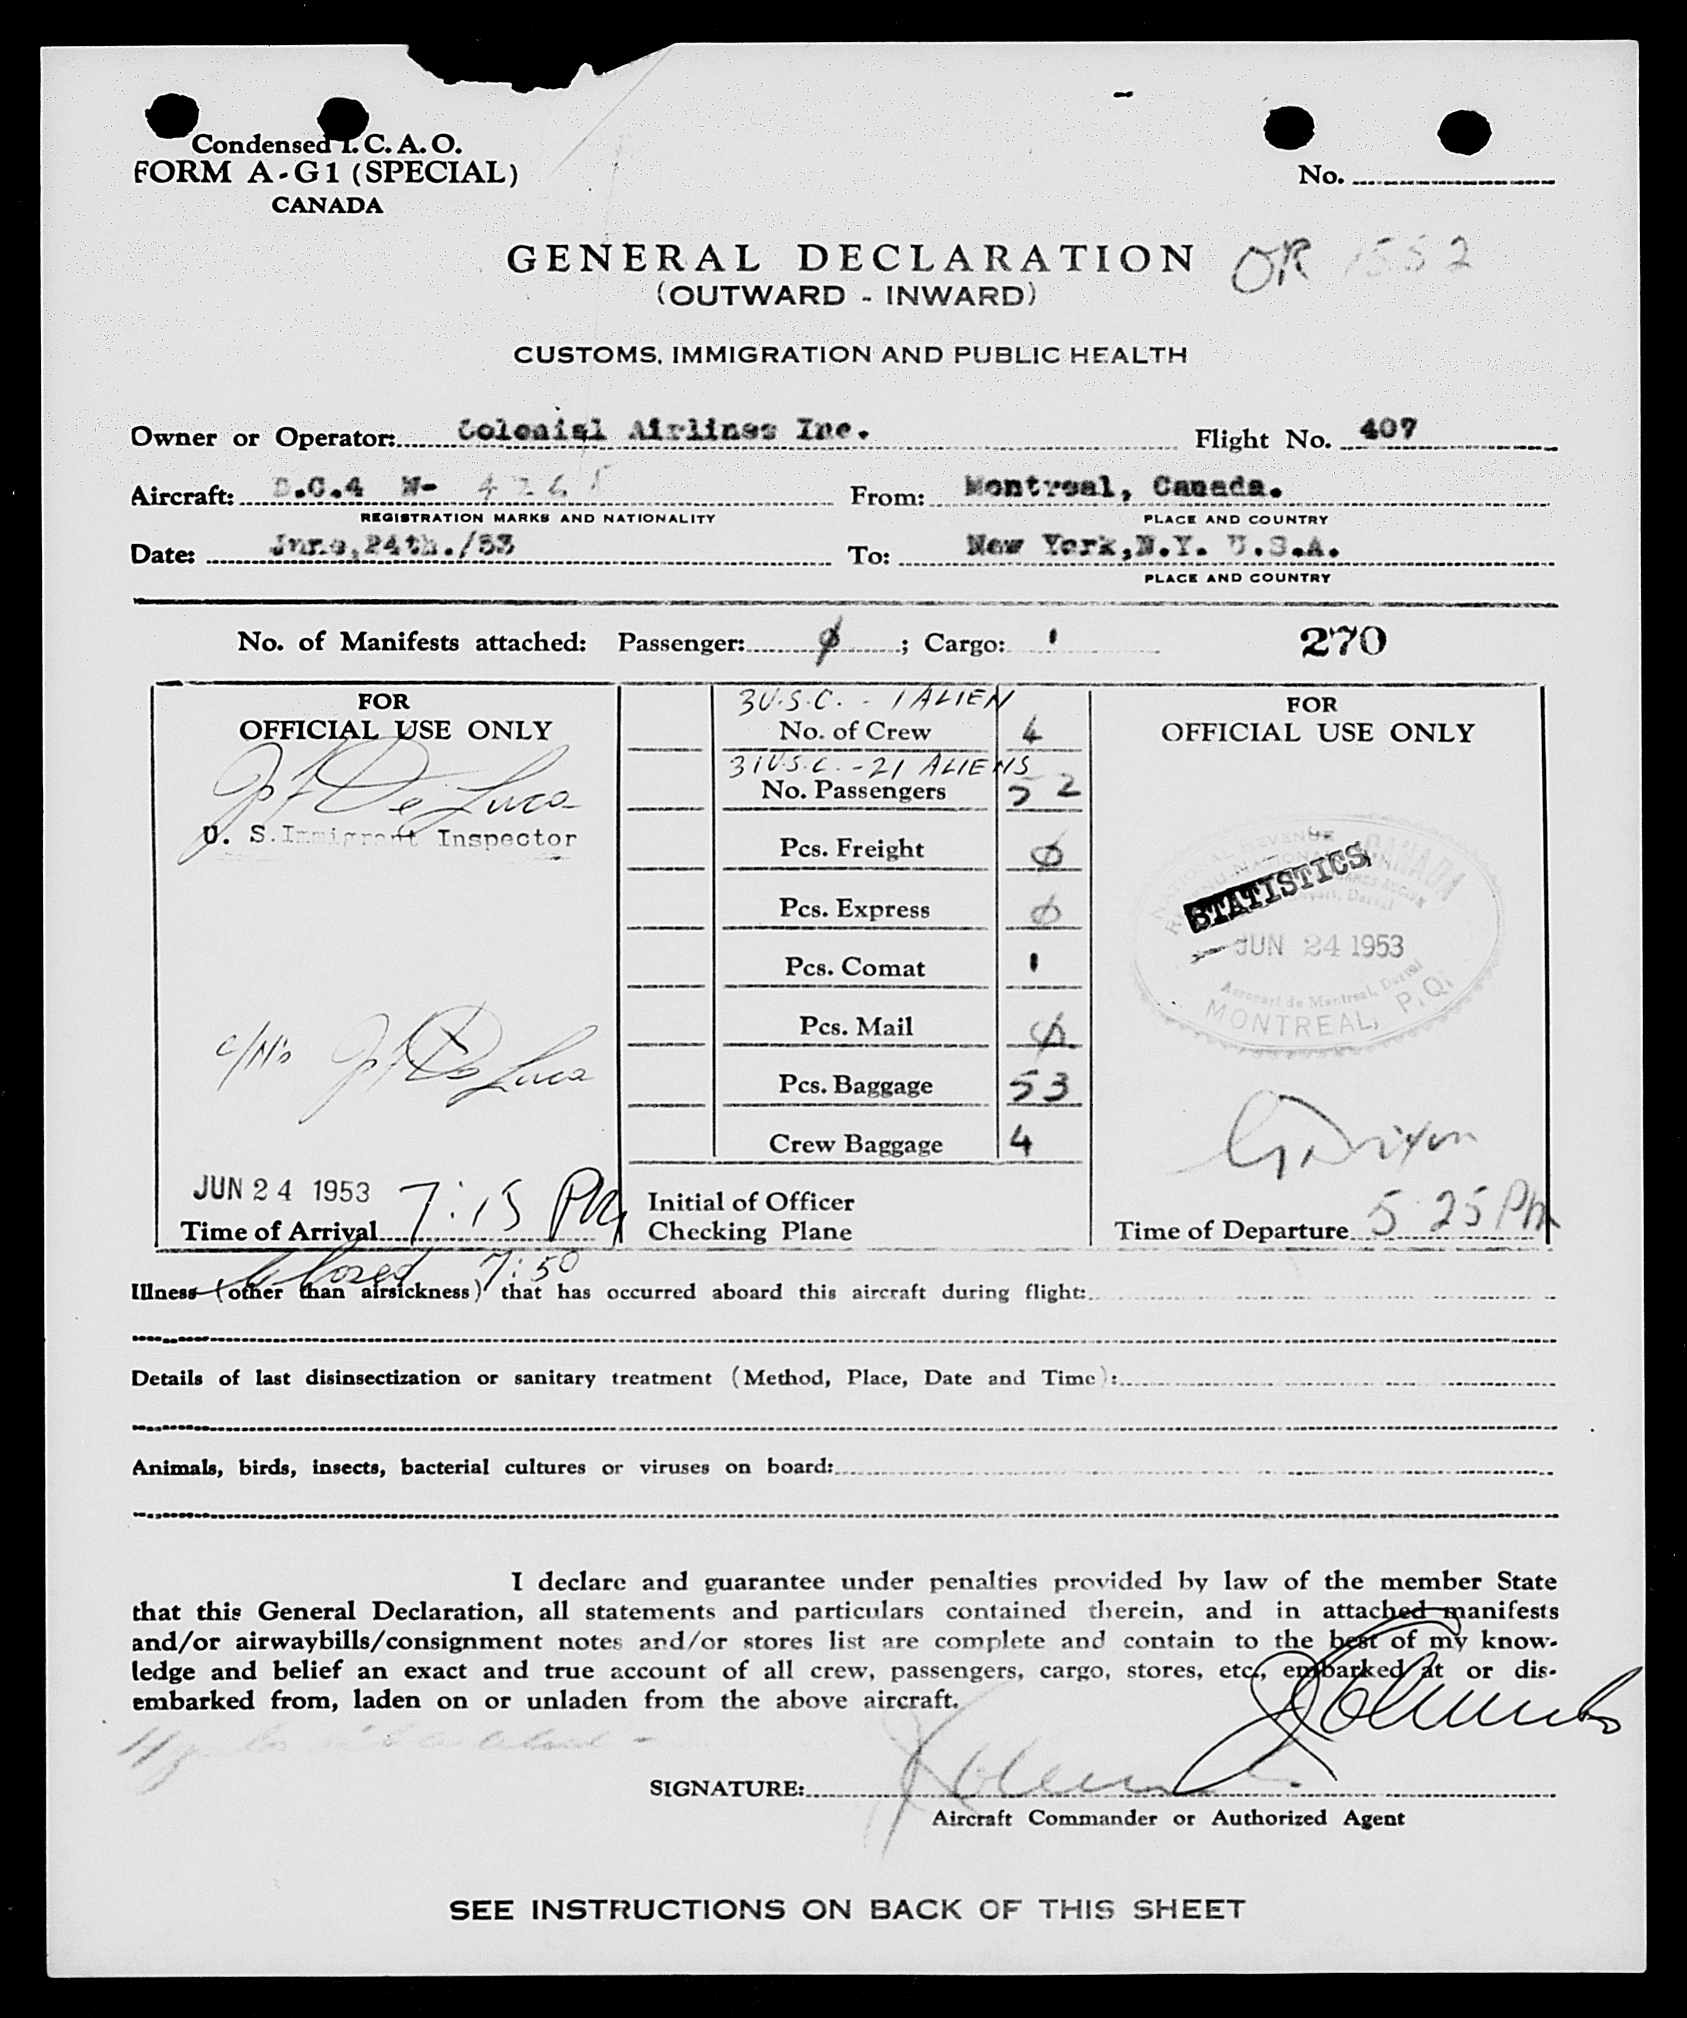 Condensed I. C. A. O.
FORM A-G1 (SPECIAL)
CANADA
No.
GENERAL DECLARATION
OR 1552
(OUTWARD - INWARD)
CUSTOMS, IMMIGRATION AND PUBLIC HEALTH
Owner or Operator: Colonial Airlines Inc. Flight No. 407
Aircraft: D.C.4 N- 4265 From: Montreal, Canada.
REGISTRATION MARKS AND NATIONALITY PLACE AND COUNTRY
Date: June,24th./53 To: New York,N.Y. U.S.A.
PLACE AND COUNTRY
No. of Manifests attached: Passenger: φ ; Cargo: 1 270
FOR
OFFICIAL USE ONLY
De Luca
U. S. Immigrant Inspector
c/N's De Luca
JUN 24 1953 7:15 PM
Time of Arrival
Closed 7:50
3 U.S.C. - 1 ALIEN
No. of Crew 4
31 U.S.C. - 21 ALIENS
No. Passengers 52
Pcs. Freight φ
Pcs. Express φ
Pcs. Comat 1
Pcs. Mail φ
Pcs. Baggage 53
Crew Baggage 4
Initial of Officer
Checking Plane
FOR
OFFICIAL USE ONLY
CANADA
STATISTICS
JUN 24 1953
Aeroport de Montreal, Dorval
MONTREAL, P.Q.
Dixon
Time of Departure 5 25 PM
Illness (other than airsickness) that has occurred aboard this aircraft during flight:
Details of last disinsectization or sanitary treatment (Method, Place, Date and Time):
Animals, birds, insects, bacterial cultures or viruses on board:
I declare and guarantee under penalties provided by law of the member State
that this General Declaration, all statements and particulars contained therein, and in attached manifests
and/or airwaybills/consignment notes and/or stores list are complete and contain to the best of my know-
ledge and belief an exact and true account of all crew, passengers, cargo, stores, etc., embarked at or dis-
embarked from, laden on or unladen from the above aircraft.
SIGNATURE:
Aircraft Commander or Authorized Agent
SEE INSTRUCTIONS ON BACK OF THIS SHEET